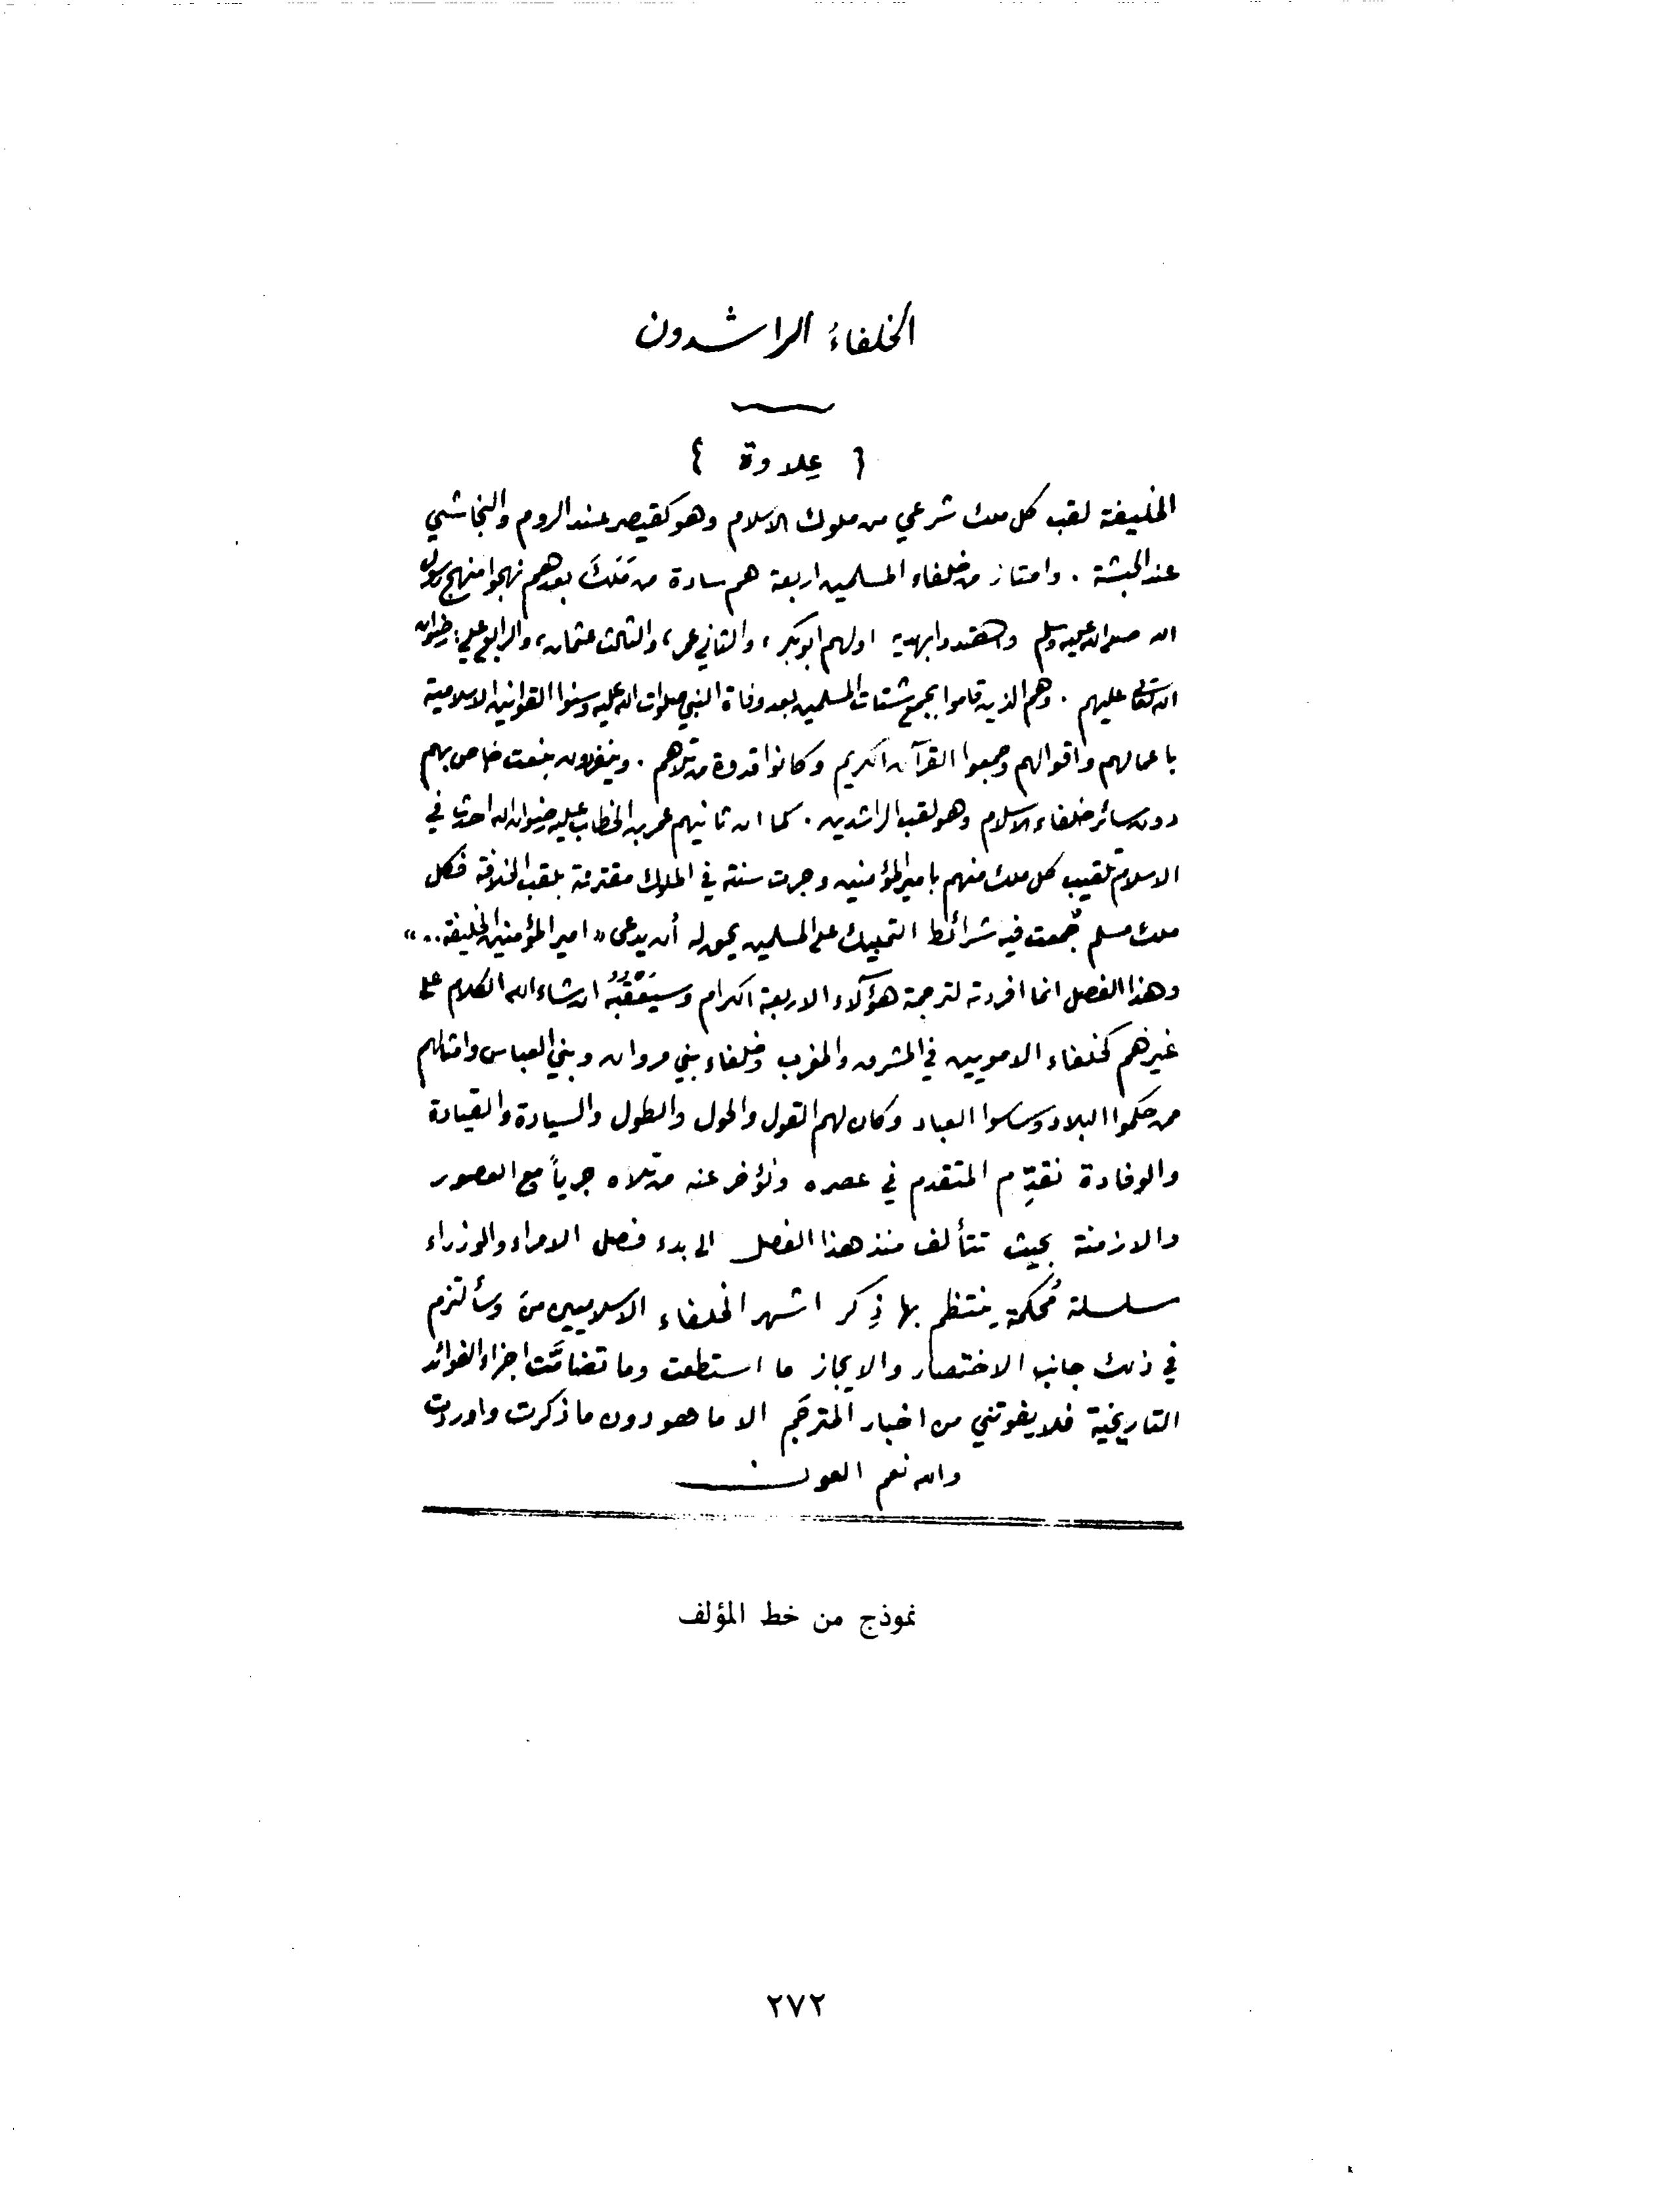 الخلفاءُ الراشدون
{ عِلاوة }
الخليفة لقب كل ملك شرعي من ملوك الاسلام وهو كقيصر عند الروم والنجاشي
عند الحبشة . وامتاز من خلفاء المسلمين اربعة هم سادة من مَلَكَ بعدهم نهجوا منهج رسول
الله صلى الله عليه وسلم واهتدوا بهديه اولهم ابو بكر ، والثاني عمر ، والثالث عثمان ، والرابع علي ؛ رضوان
الله تعالى عليهم . وهم الذين قاموا بجمع شتات المسلمين بعد وفاة النبي صلوات الله عليه وسنوا القوانين الاسلامية
باعمالهم واقوالهم وجمعوا القرآن الكريم وكانوا قدوة من تلاهم . وينفردون بنعت خاص بهم
دون سائر خلفاء الاسلام وهو لقب الراشدين . كما ان ثانيهم عمر بن الخطاب عليه رضوان الله احدث في
الاسلام تلقيب كل ملك منهم بامير المؤمنين وجرت سنة في الملوك مقترنة بلقب الخلافة فكل
ملك مسلم جُمعت فيه شرائط التمليك على المسلمين يحق له أن يدعى « امير المؤمنين الخليفة .. »
وهذا الفصل انما افردته لترجمة هؤلاء الاربعة الكرام وسيَعْقُبُهُ ان شاء الله الكلام على
غيرهم كخلفاء الامويين في المشرق والمغرب وخلفاء بني مروان وبني العباس وامثالهم
من حكموا البلاد وساسوا العباد وكان لهم القول والحول والطول والسيادة والقيادة
والوفادة نقدِّم المتقدم في عصره ونؤخر عنه من تلاه جرياً مع العصور
والازمنة بحيث تتألف منذ هذا الفصل الى بدء فصل الامراء والوزراء
سلسلة مُحكمة ينتظم بها ذِكر اشهر الخلفاء الاسلاميين وسألتزم
في ذلك جانب الاختصار والايجاز ما استطعت وما تضامَّت اجزاء الفوائد
التاريخية فلا يفوتني من اخبار المترجَم الا ما هو دون ما ذكرت واوردت
والله نعم العون
نموذج من خط المؤلف
٢٧٢